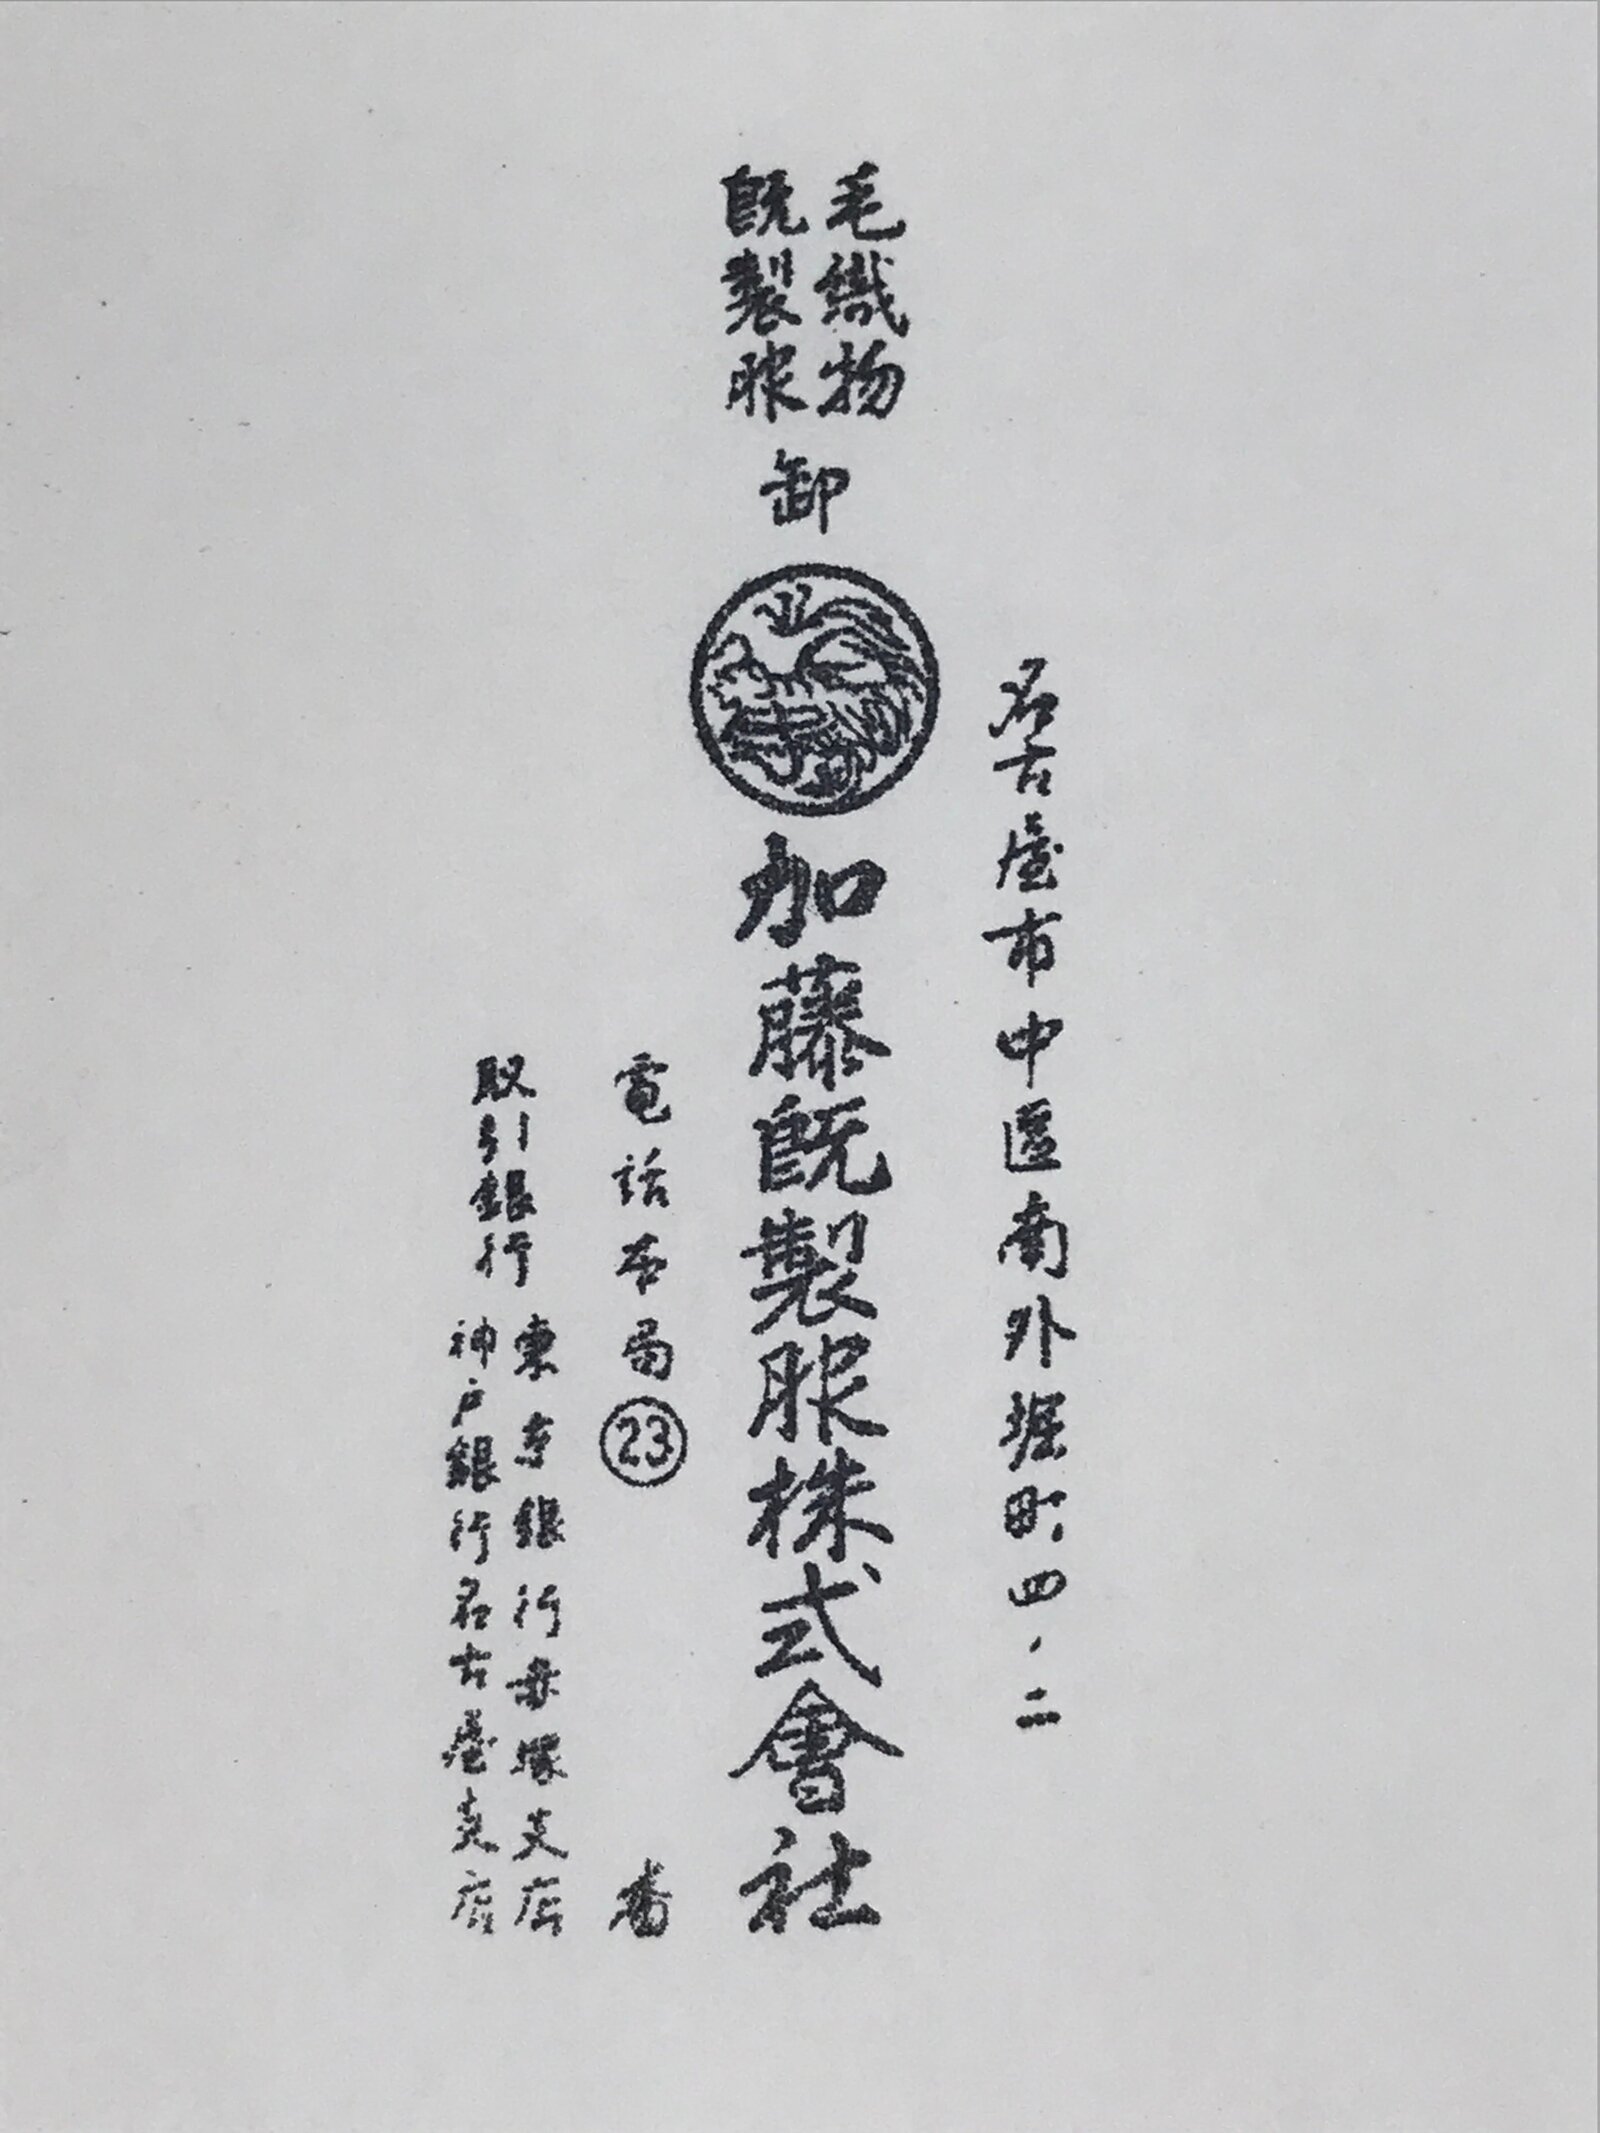 名古屋市中區南外堀町四、二
毛織物
既製服
卸
寿
加藤既製服株式會社
電話本局㉓ 番
取引銀行
東京銀行赤塚支店
神戸銀行名古屋支店